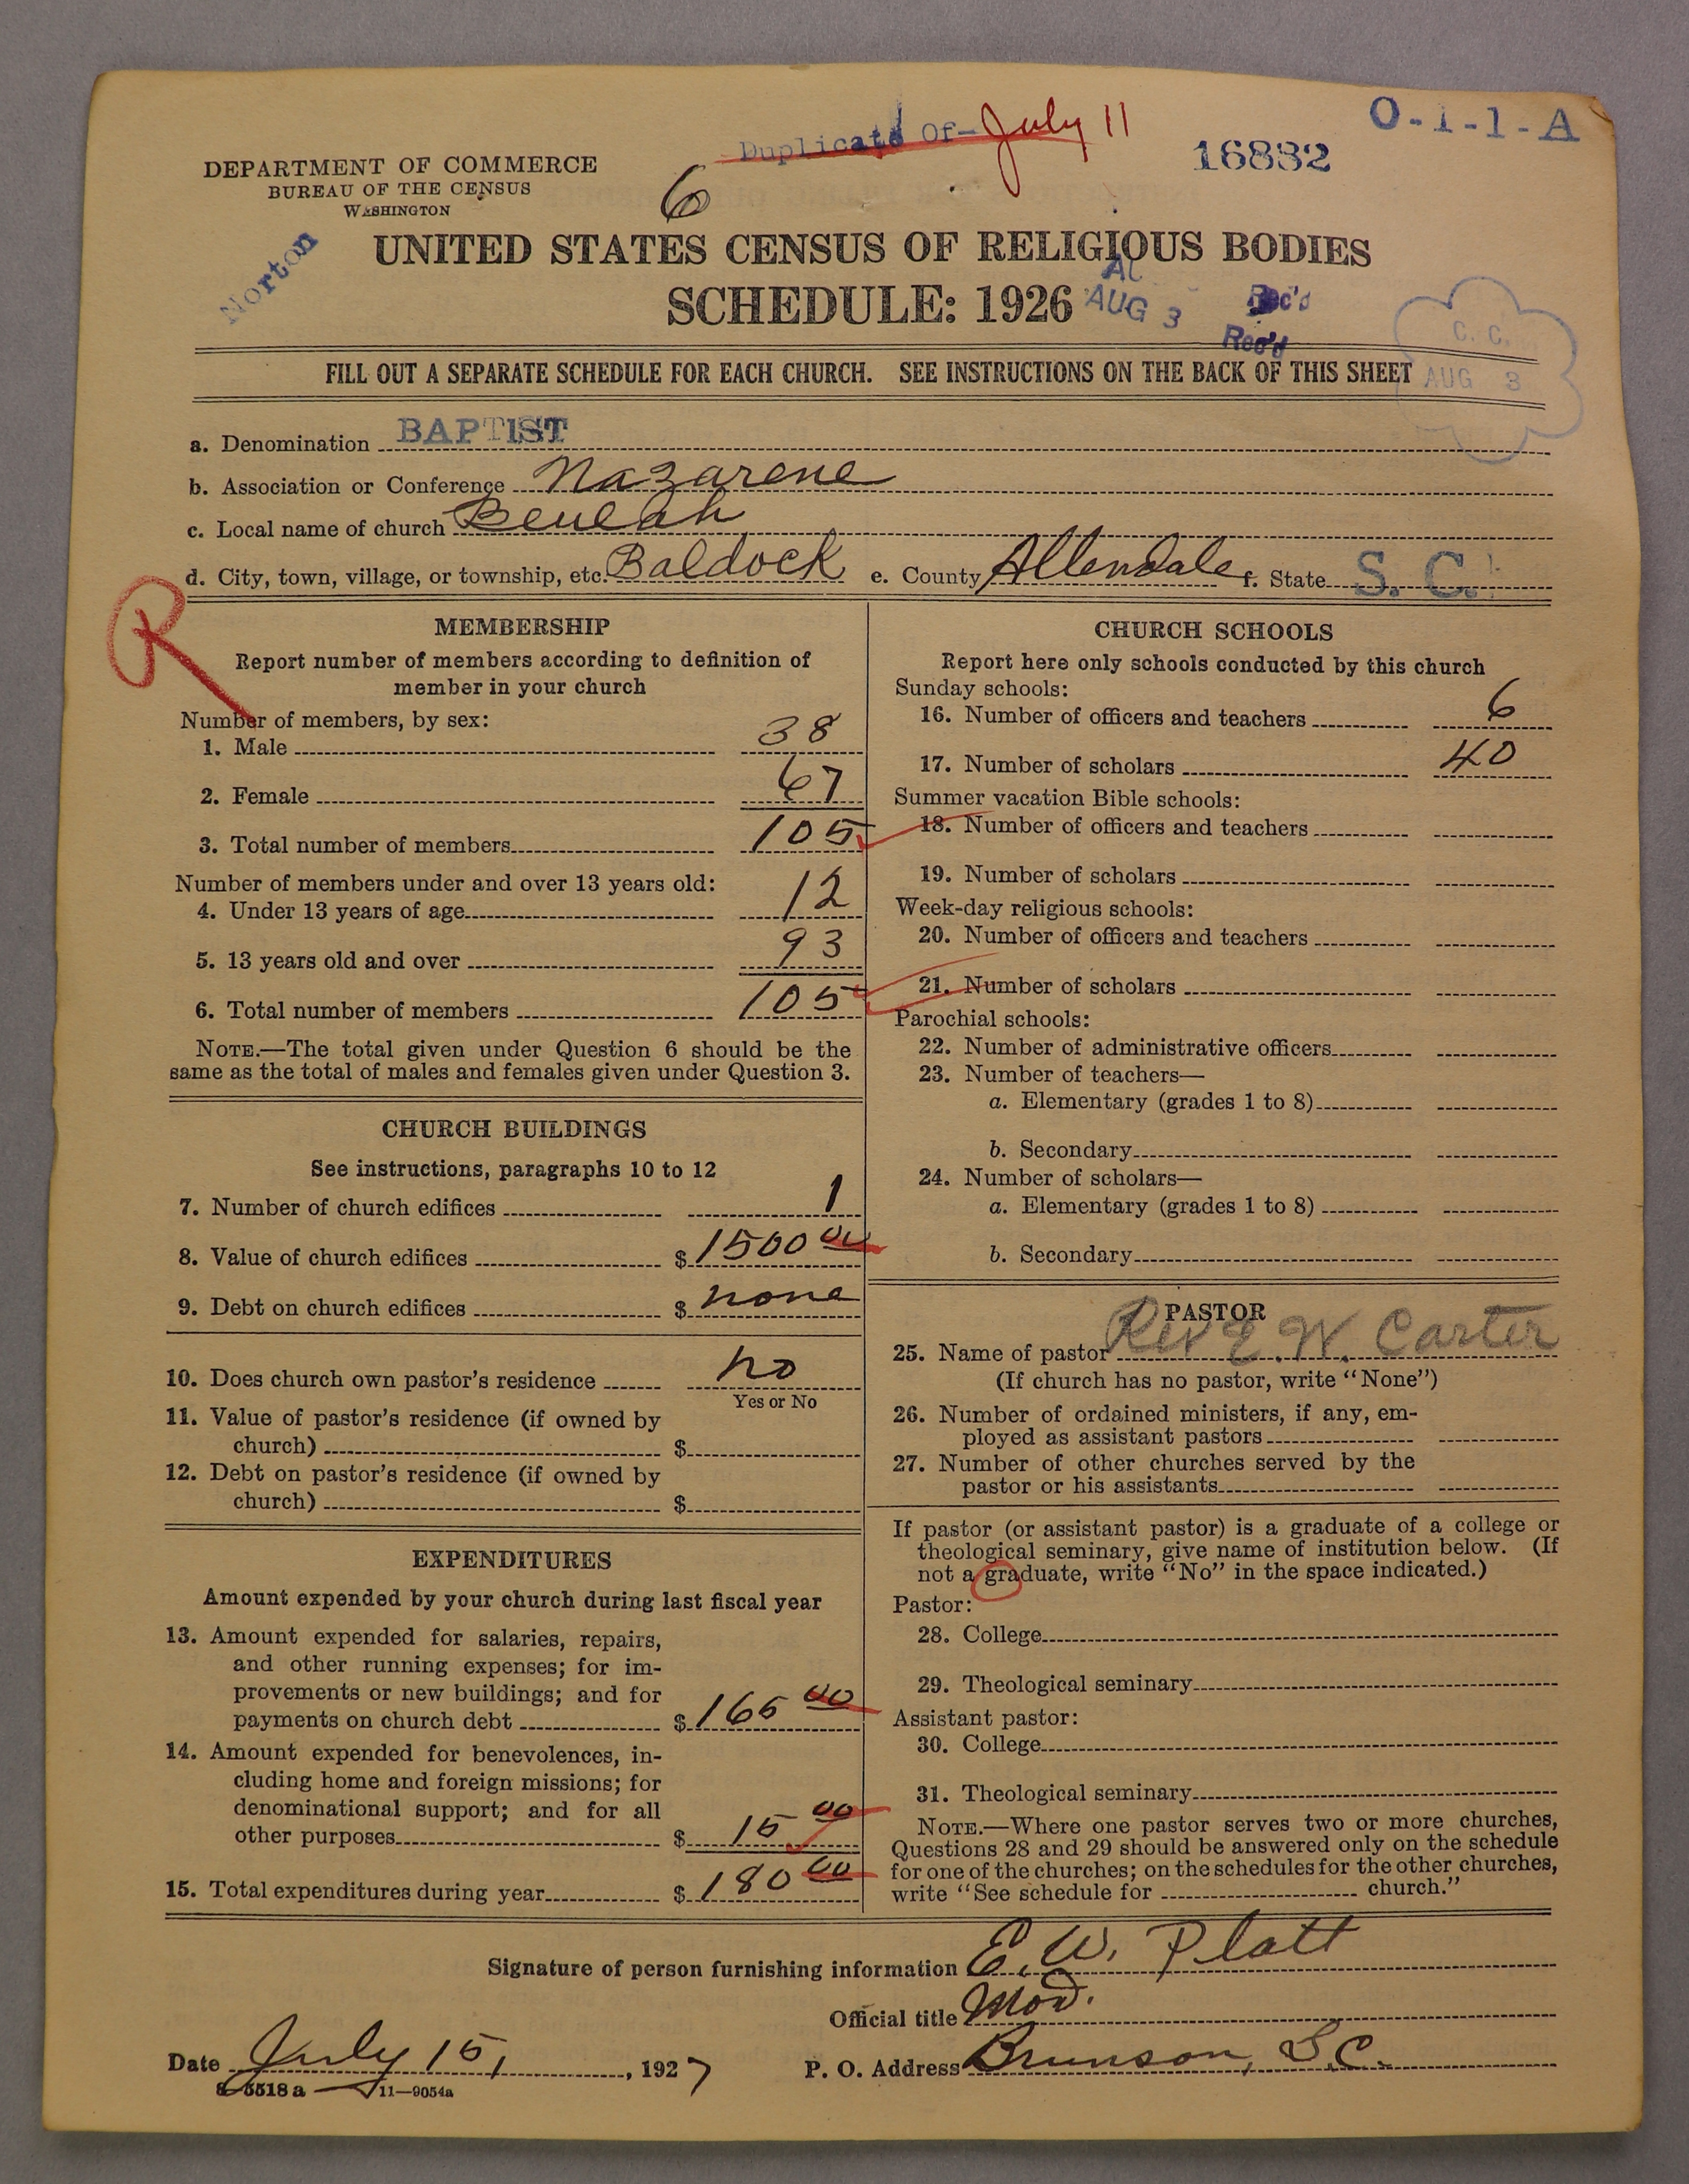 O-1-1-A
Duplicate Of- July 11
16832
DEPARTMENT OF COMMERCE
BUREAU OF THE CENSUS
WASHINGTON
6
Norton
UNITED STATES CENSUS OF RELIGIOUS BODIES
SCHEDULE: 1926
AUG 3 Rec'd
Rec'd
C. C.
AUG 3
FILL OUT A SEPARATE SCHEDULE FOR EACH CHURCH. SEE INSTRUCTIONS ON THE BACK OF THIS SHEET
a. Denomination BAPTIST
b. Association or Conference Nazarene
c. Local name of church Beulah
d. City, town, village, or township, etc. Baldock e. County Allendale f. State S. C.
R
MEMBERSHIP
Report number of members according to definition of
member in your church
Number of members, by sex:
1. Male 38
2. Female 67
3. Total number of members 105
Number of members under and over 13 years old:
4. Under 13 years of age 12
5. 13 years old and over 93
6. Total number of members 105
NOTE.—The total given under Question 6 should be the
same as the total of males and females given under Question 3.
CHURCH BUILDINGS
See instructions, paragraphs 10 to 12
7. Number of church edifices 1
8. Value of church edifices $ 1500 00
9. Debt on church edifices $ none
10. Does church own pastor's residence no
Yes or No
11. Value of pastor's residence (if owned by
church) $
12. Debt on pastor's residence (if owned by
church) $
EXPENDITURES
Amount expended by your church during last fiscal year
13. Amount expended for salaries, repairs,
and other running expenses; for im-
provements or new buildings; and for
payments on church debt $ 165 00
14. Amount expended for benevolences, in-
cluding home and foreign missions; for
denominational support; and for all
other purposes $ 15 00
15. Total expenditures during year $ 180 00
CHURCH SCHOOLS
Report here only schools conducted by this church
Sunday schools:
16. Number of officers and teachers 6
17. Number of scholars 40
Summer vacation Bible schools:
18. Number of officers and teachers
19. Number of scholars
Week-day religious schools:
20. Number of officers and teachers
21. Number of scholars
Parochial schools:
22. Number of administrative officers
23. Number of teachers—
a. Elementary (grades 1 to 8)
b. Secondary
24. Number of scholars—
a. Elementary (grades 1 to 8)
b. Secondary
PASTOR
25. Name of pastor Rev E. W. Carter
(If church has no pastor, write "None")
26. Number of ordained ministers, if any, em-
ployed as assistant pastors
27. Number of other churches served by the
pastor or his assistants
If pastor (or assistant pastor) is a graduate of a college or
theological seminary, give name of institution below. (If
not a graduate, write "No" in the space indicated.)
Pastor:
28. College
29. Theological seminary
Assistant pastor:
30. College
31. Theological seminary
NOTE.—Where one pastor serves two or more churches,
Questions 28 and 29 should be answered only on the schedule
for one of the churches; on the schedules for the other churches,
write "See schedule for church."
Signature of person furnishing information E. W. Platt
Official title Mod.
Date July 15, 1927 P. O. Address Brunson, S.C.
8-5518 a 11—9054a